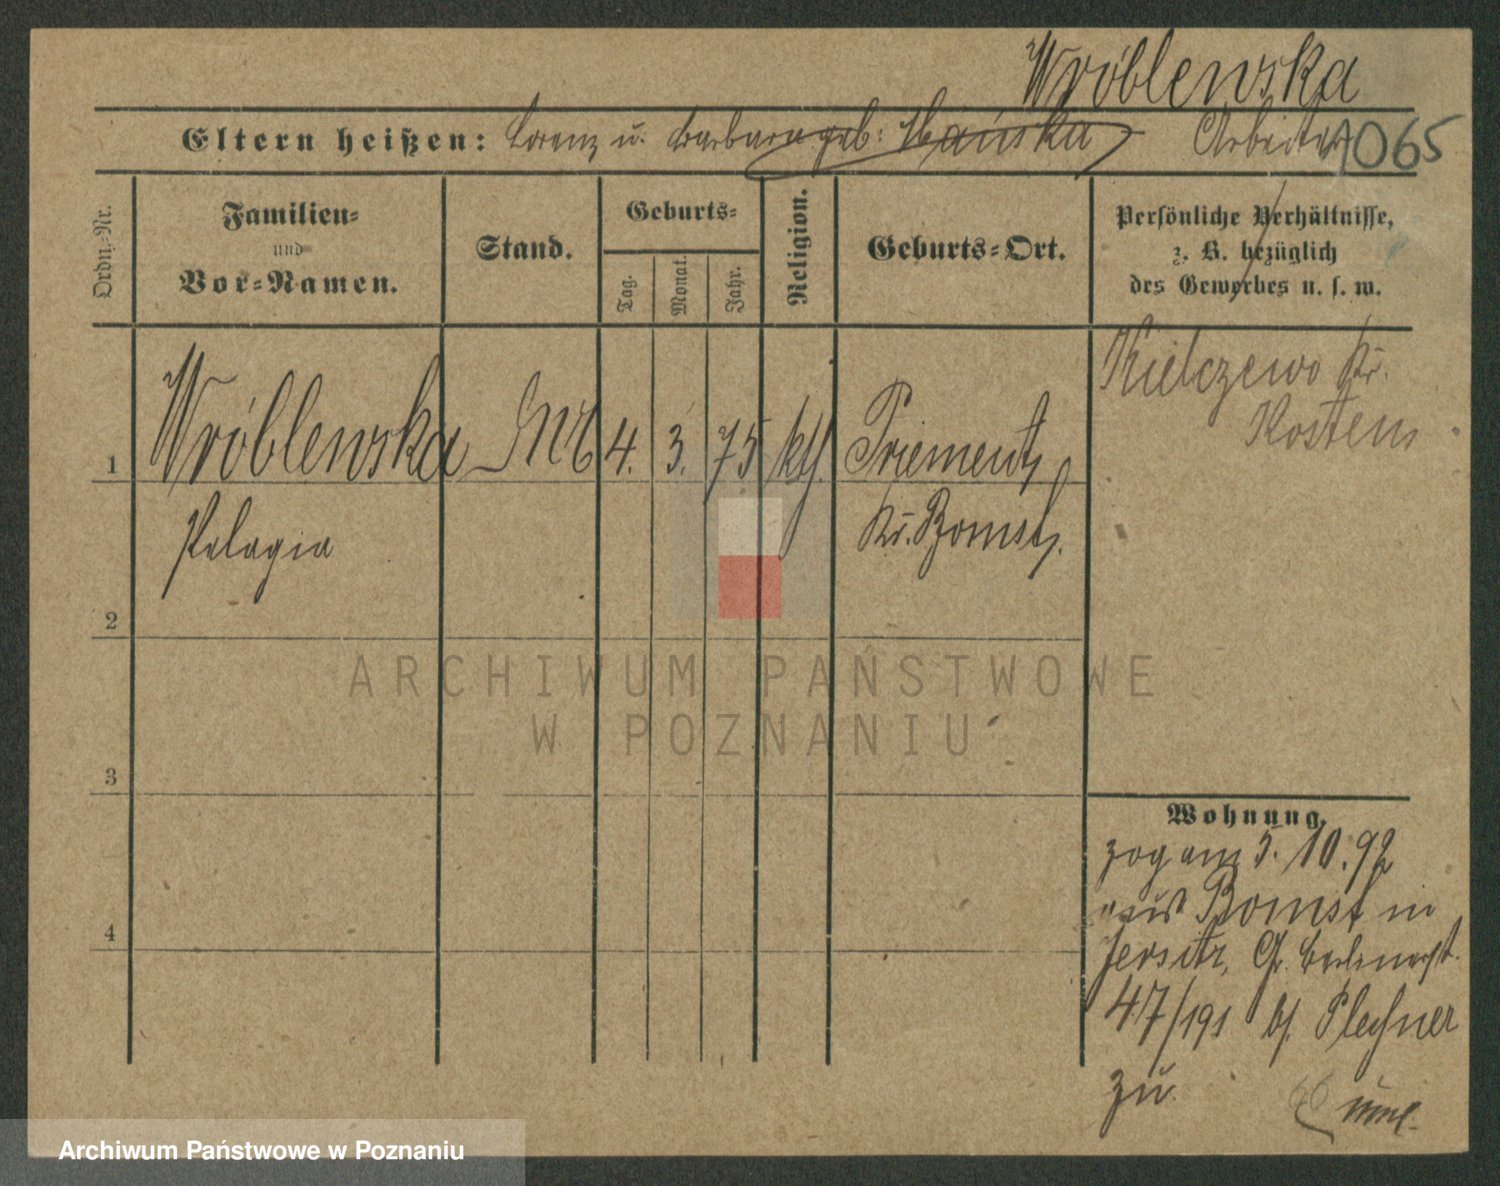 Wróblewska
Eltern heißen: Lorenz u. Barbara geb: Arbeiter 1065
Ordn.-Nr.
Familien-
und
Vor-Namen.
Stand.
Geburts-
Tag.
Monat.
Jahr.
Religion.
Geburts-Ort.
Persönliche Verhältnisse,
z. B. bezüglich
des Gewerbes u. s. w.
1 Wróblewska 4. 3. 75 kth. Priement,
Pelagia
Kr. Bomst,
Kielczewo Kr.
Kosten
2
3
4
Wohnung.
zog am 5. 10. 92
aus Bomst in
Jersitz, Gr. Berlinerst.
47/191 b/ Plechner
zu.
ARCHIWUM PAŃSTWOWE
W POZNANIU
Archiwum Państwowe w Poznaniu